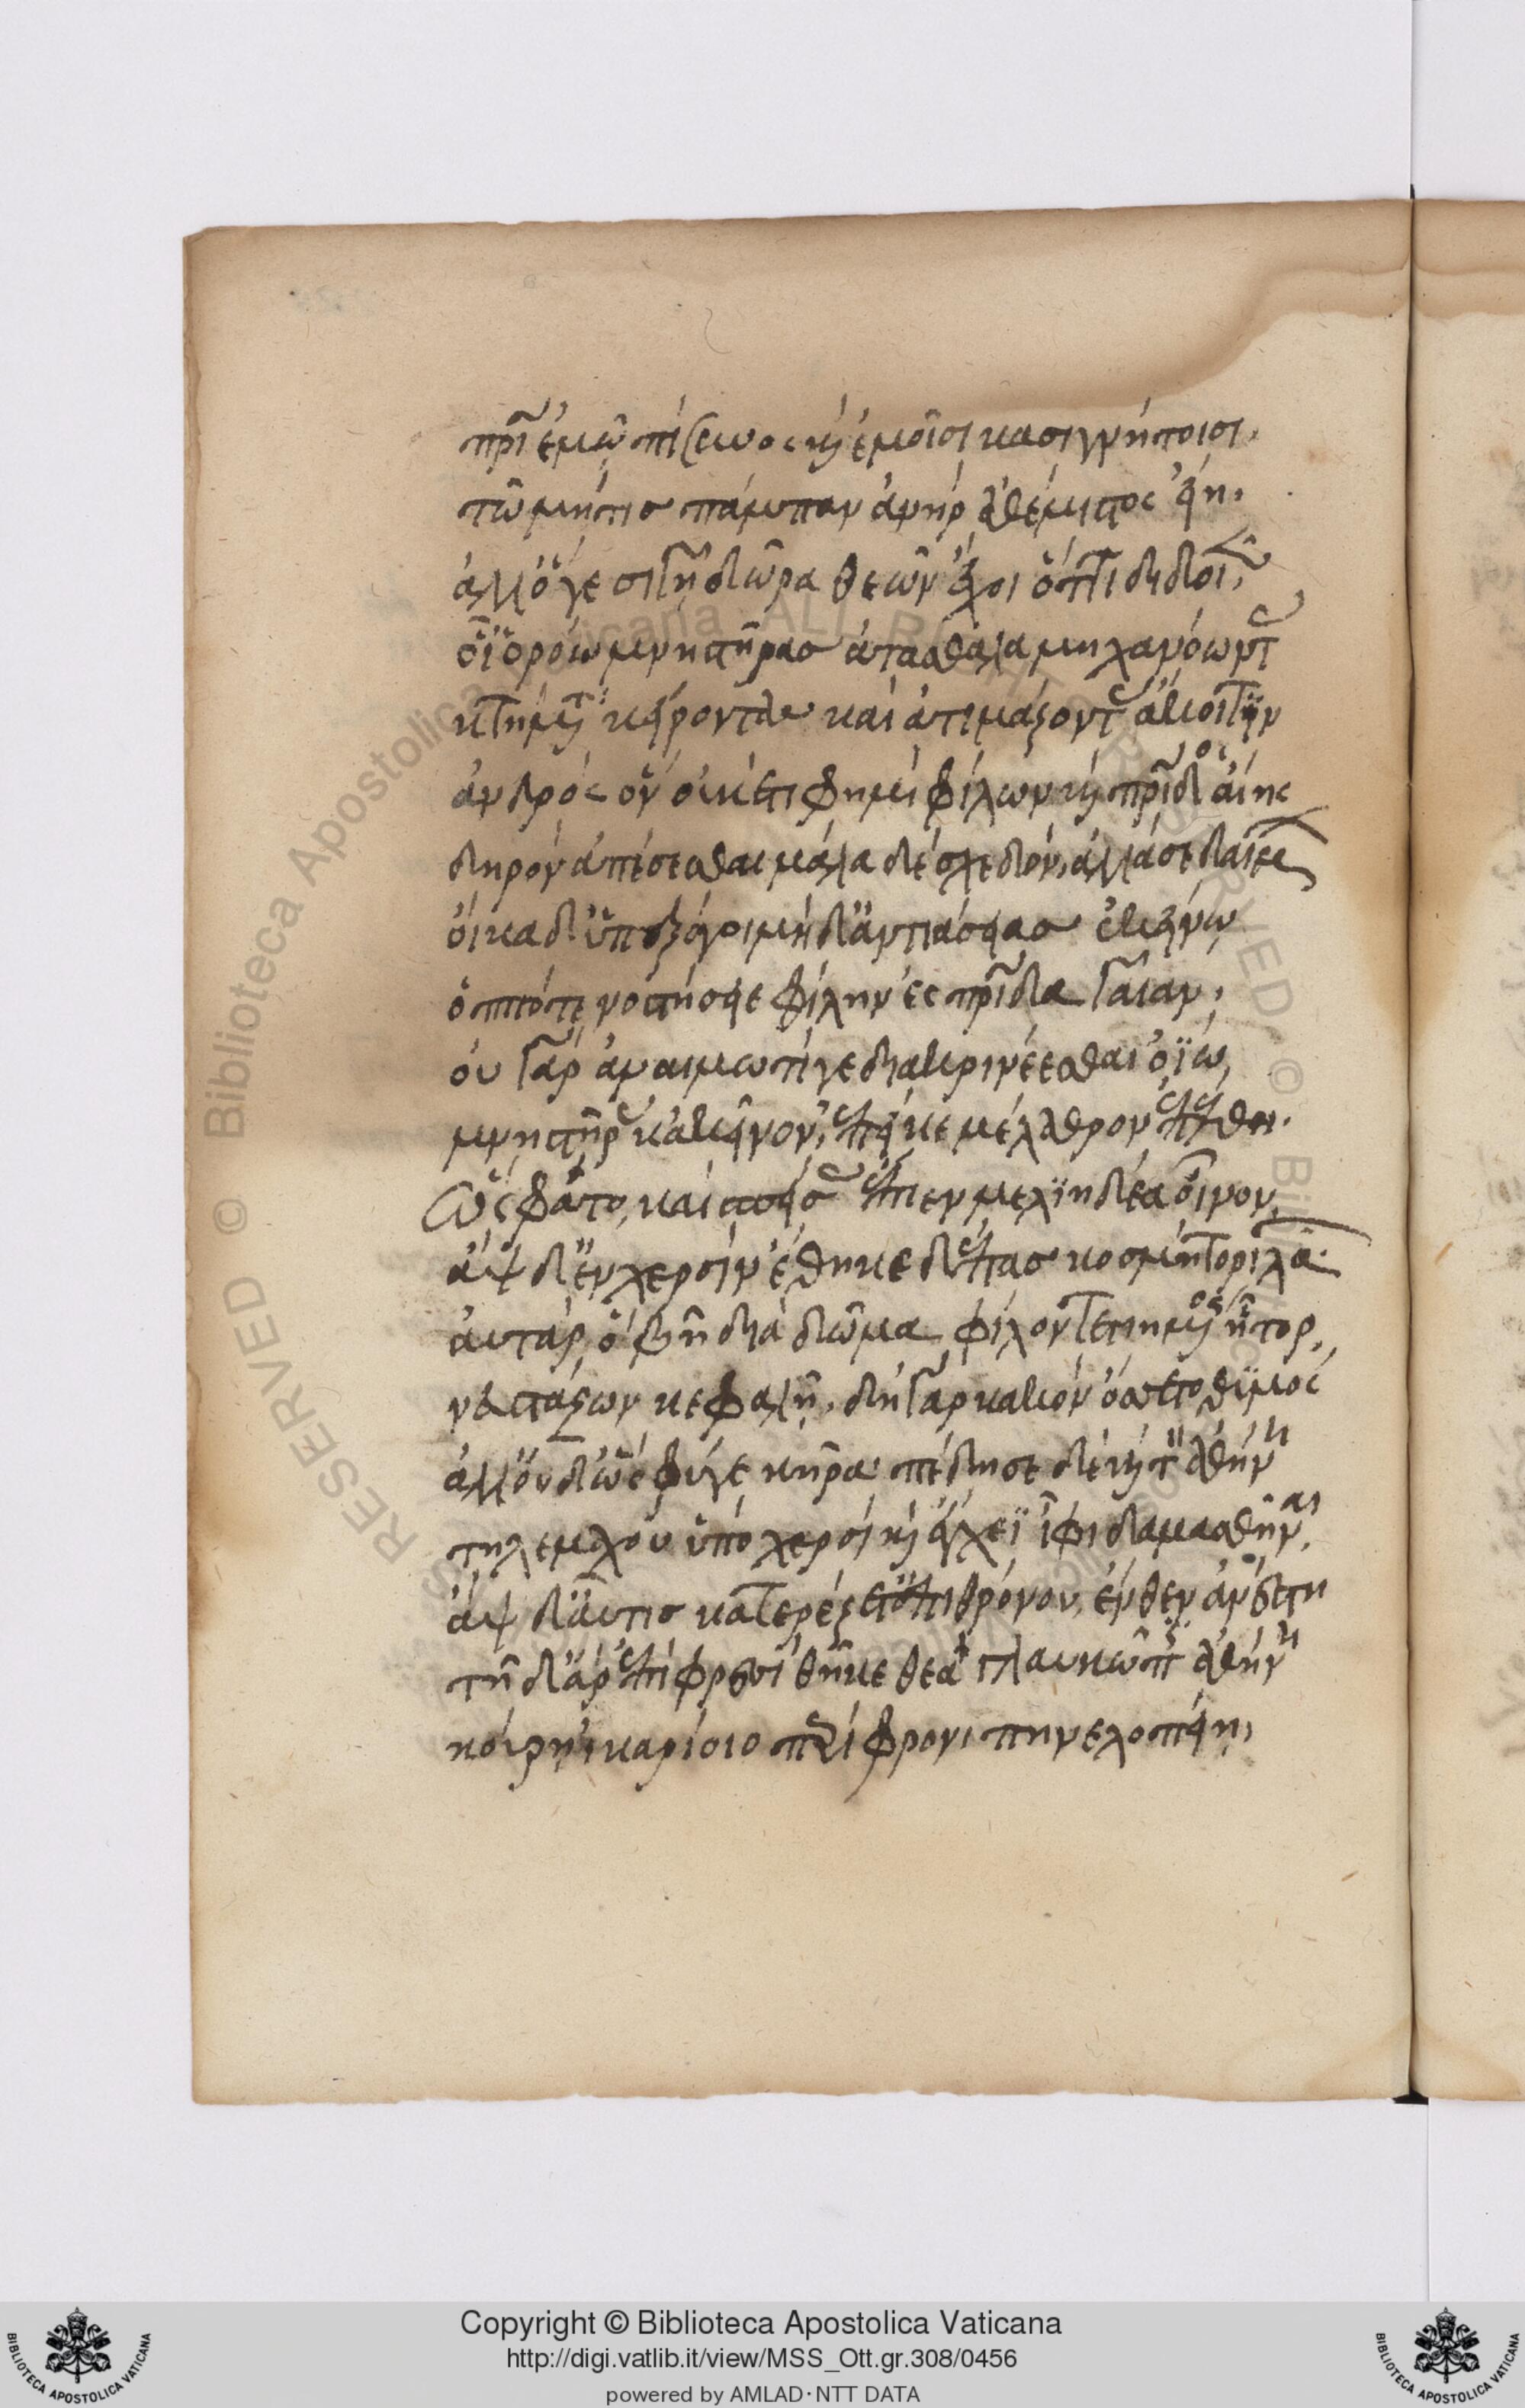 πρί ἐμῷ πίσυνος καὶ ἐμοῖσι κασιγνήτοισι.
τῶ μήτις πάμπαν ἀνὴρ ἀθεμίστιος εἴη.
ἀλλ' ὅγε σιγῇ δῶρα θεῶν ἔχοι ὅττι διδοῖεν,
οἷ' ὁρόω μνηστῆρας ἀτάσθαλα μηχανόωντας
κτήματα κείροντας καὶ ἀτιμάζοντας ἄκοιτιν
ἀνδρός ὃν οὐκέτι φημὶ φίλων καὶ πρίδος αἴης
δηρὸν ἀπέσεσθαι μάλα δὲ σχεδόν, ἀλλά σε δαίμων
οἴκαδ' ὑπεξαγάγοι μὴ δ' ἀντιάσειας ἐκείνω
ὁππότε νοστήσειε φίλην ἐς πρίδα γαῖαν,
οὐ γὰρ ἀναιμωτί γε διακρινέεσθαι ὀΐω,
μνηστῆρας καὶ κεῖνον, ἐπεί κε μέλαθρον ὑπέλθη.
Ὣς φάτο, καὶ σπείσας ἔπιεν μελιηδέα οἶνον,
ἂψ δ' ἐν χερσὶν ἔθηκε δέπας κοσμήτορι λαῶν.
αὐτὰρ ὁ βῆ διὰ δῶμα φίλον τετιημένος ἦτορ,
νευστάζων κεφαλῇ, δὴ γὰρ κακὸν ὄσσετο θυμός
ἀλλ' οὐδ' ὣς φύγε κῆρα· πέδησε δὲ καὶ τὸν ἀθήνη
τηλεμάχου ὑπὸ χερσὶ καὶ ἔγχεϊ ἶφι δαμασθῆναι,
ἂψ δ' αὖτις κατ' ἄρ' ἕζετ' ἐπὶ θρόνου, ἔνθεν ἀνέστη
τῇ δ' ἄρ' ἐπὶ φρεσὶ θῆκε θεὰ γλαυκῶπις ἀθήνη
κούρῃ ἰκαρίοιο περίφρονι πηνελοπείη,
Copyright © Biblioteca Apostolica Vaticana
http://digi.vatlib.it/view/MSS_Ott.gr.308/0456
powered by AMLAD·NTT DATA